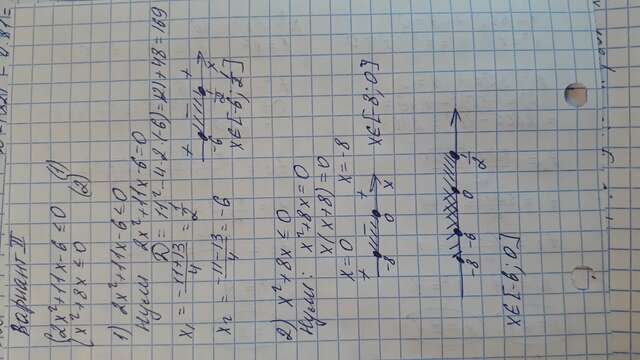 Вариант II
{2x²+11x-6≤0 (1)
{x²+8x≤0 (2)
1) 2x²+11x-6≤0
Нули 2x²+11x-6=0
D=11²-4·2·(-6)=121+48=169
x₁ = (-11+13)/4 = 1/2
x₂ = (-11-13)/4 = -6
+ - +
-6 1/2 x
x∈[-6; 1/2]
2) x²+8x≤0
Нули: x²+8x=0
x(x+8)=0
x=0 x=-8
+ - +
-8 0 x
x∈[-8; 0]
-8 -6 0 1/2
x∈[-6; 0]